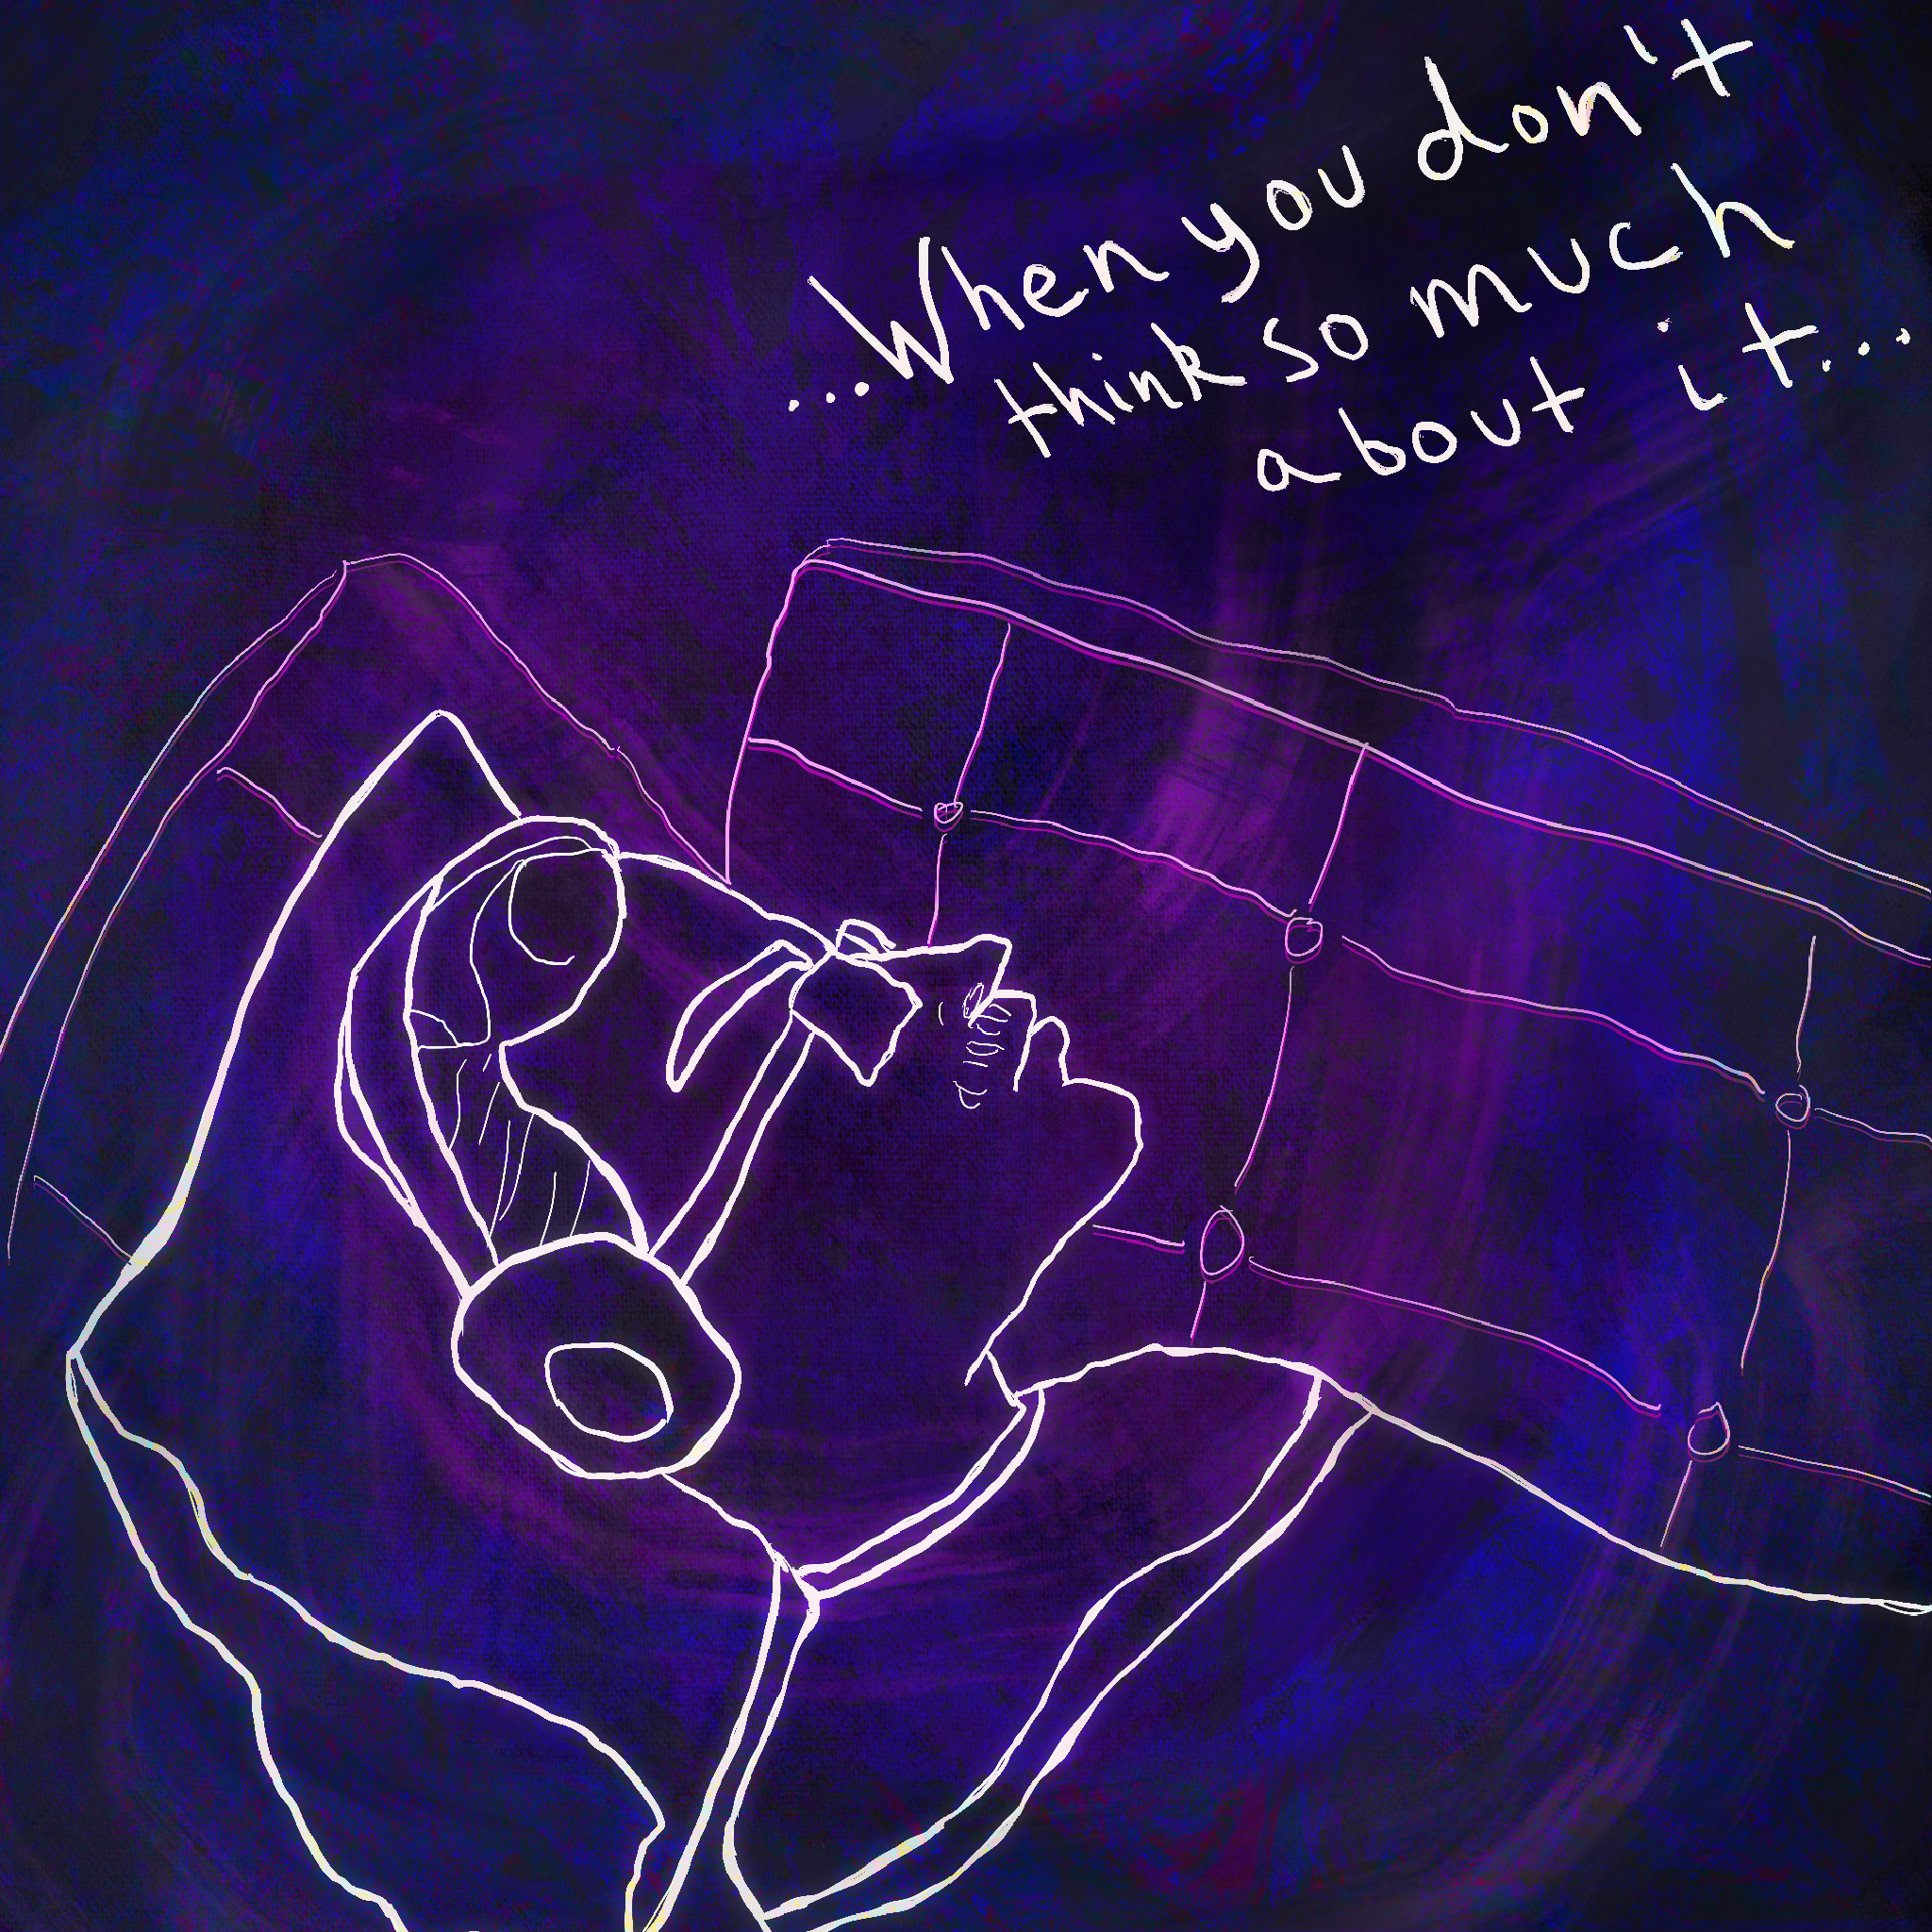 ...When you don't
think so much
about it...